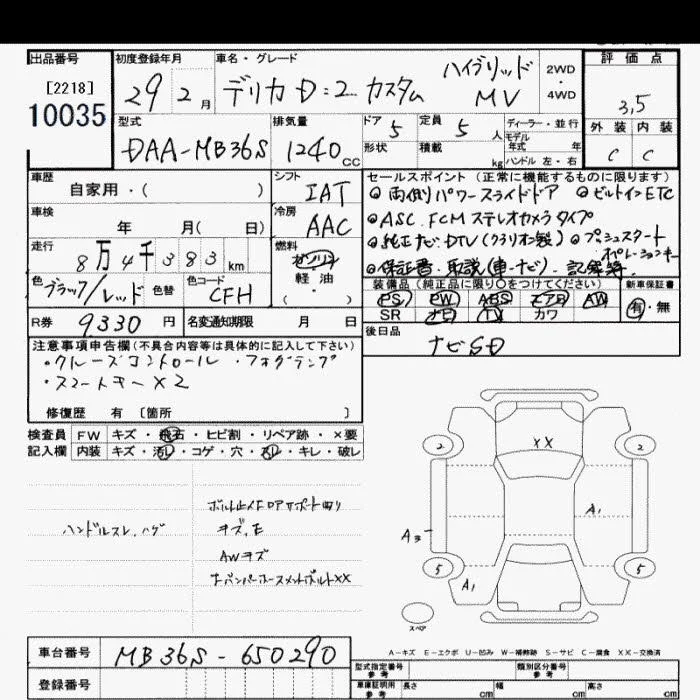 出品番号 初度登録年月 車名・グレード 評価点
[2218]
10035
29 2月 デリカD:2 カスタム ハイブリッド MV 2WD・4WD
3,5
型式 排気量 ドア 5 定員 5人 ディーラー・並行 外装 内装
モデル年式 年
DAA-MB36S 1240cc 形状 積載 kg ハンドル 左・右 C C
車歴 シフト セールスポイント(正常に機能するものに限ります)
自家用・( ) IAT
◎両側パワースライドドア ◎ビルトインETC
車検 冷房
年 月( 日) AAC
◎ASC.FCMステレオカメラタイプ
走行 燃料
8万4千383km ガソリン 軽油 ・( )
◎純正ナビ.DTV(クラリオン製) ◎プッシュスタート
オペレーションキー
◎保証書・取説(車・ナビ).記録簿.
色 色替 色コード 装備品(純正品に限り○をつけてください) 新車保証書
ブラック/レッド CFH
PS PW ABS エアB AW 有・無
SR ナビ TV カワ
R券 9330円 名変通知期限 月 日 後日品
ナビSD
注意事項申告欄(不具合内容等は具体的に記入して下さい)
・クルーズコントロール ・フォグランプ
・スマートキー×2
修復歴 有 [箇所 ]
検査員 FW キズ・飛石・ヒビ割・リペア跡・×要
記入欄 内装 キズ・汚レ・コゲ・穴・スレ・キレ・破レ
ハンドルスレ.ハゲ
キズ.E
AWキズ
XX
2 2
A3 A1
5 5
A1
スペア
A-キズ E-エクボ U-凹み W-補修跡 S-サビ C-腐食 XX-交換済
車台番号 MB36S-650290
型式指定番号 参考 類別区分番号 参考
登録番号 車庫証明用 参考 長さ cm 幅 cm 高さ cm